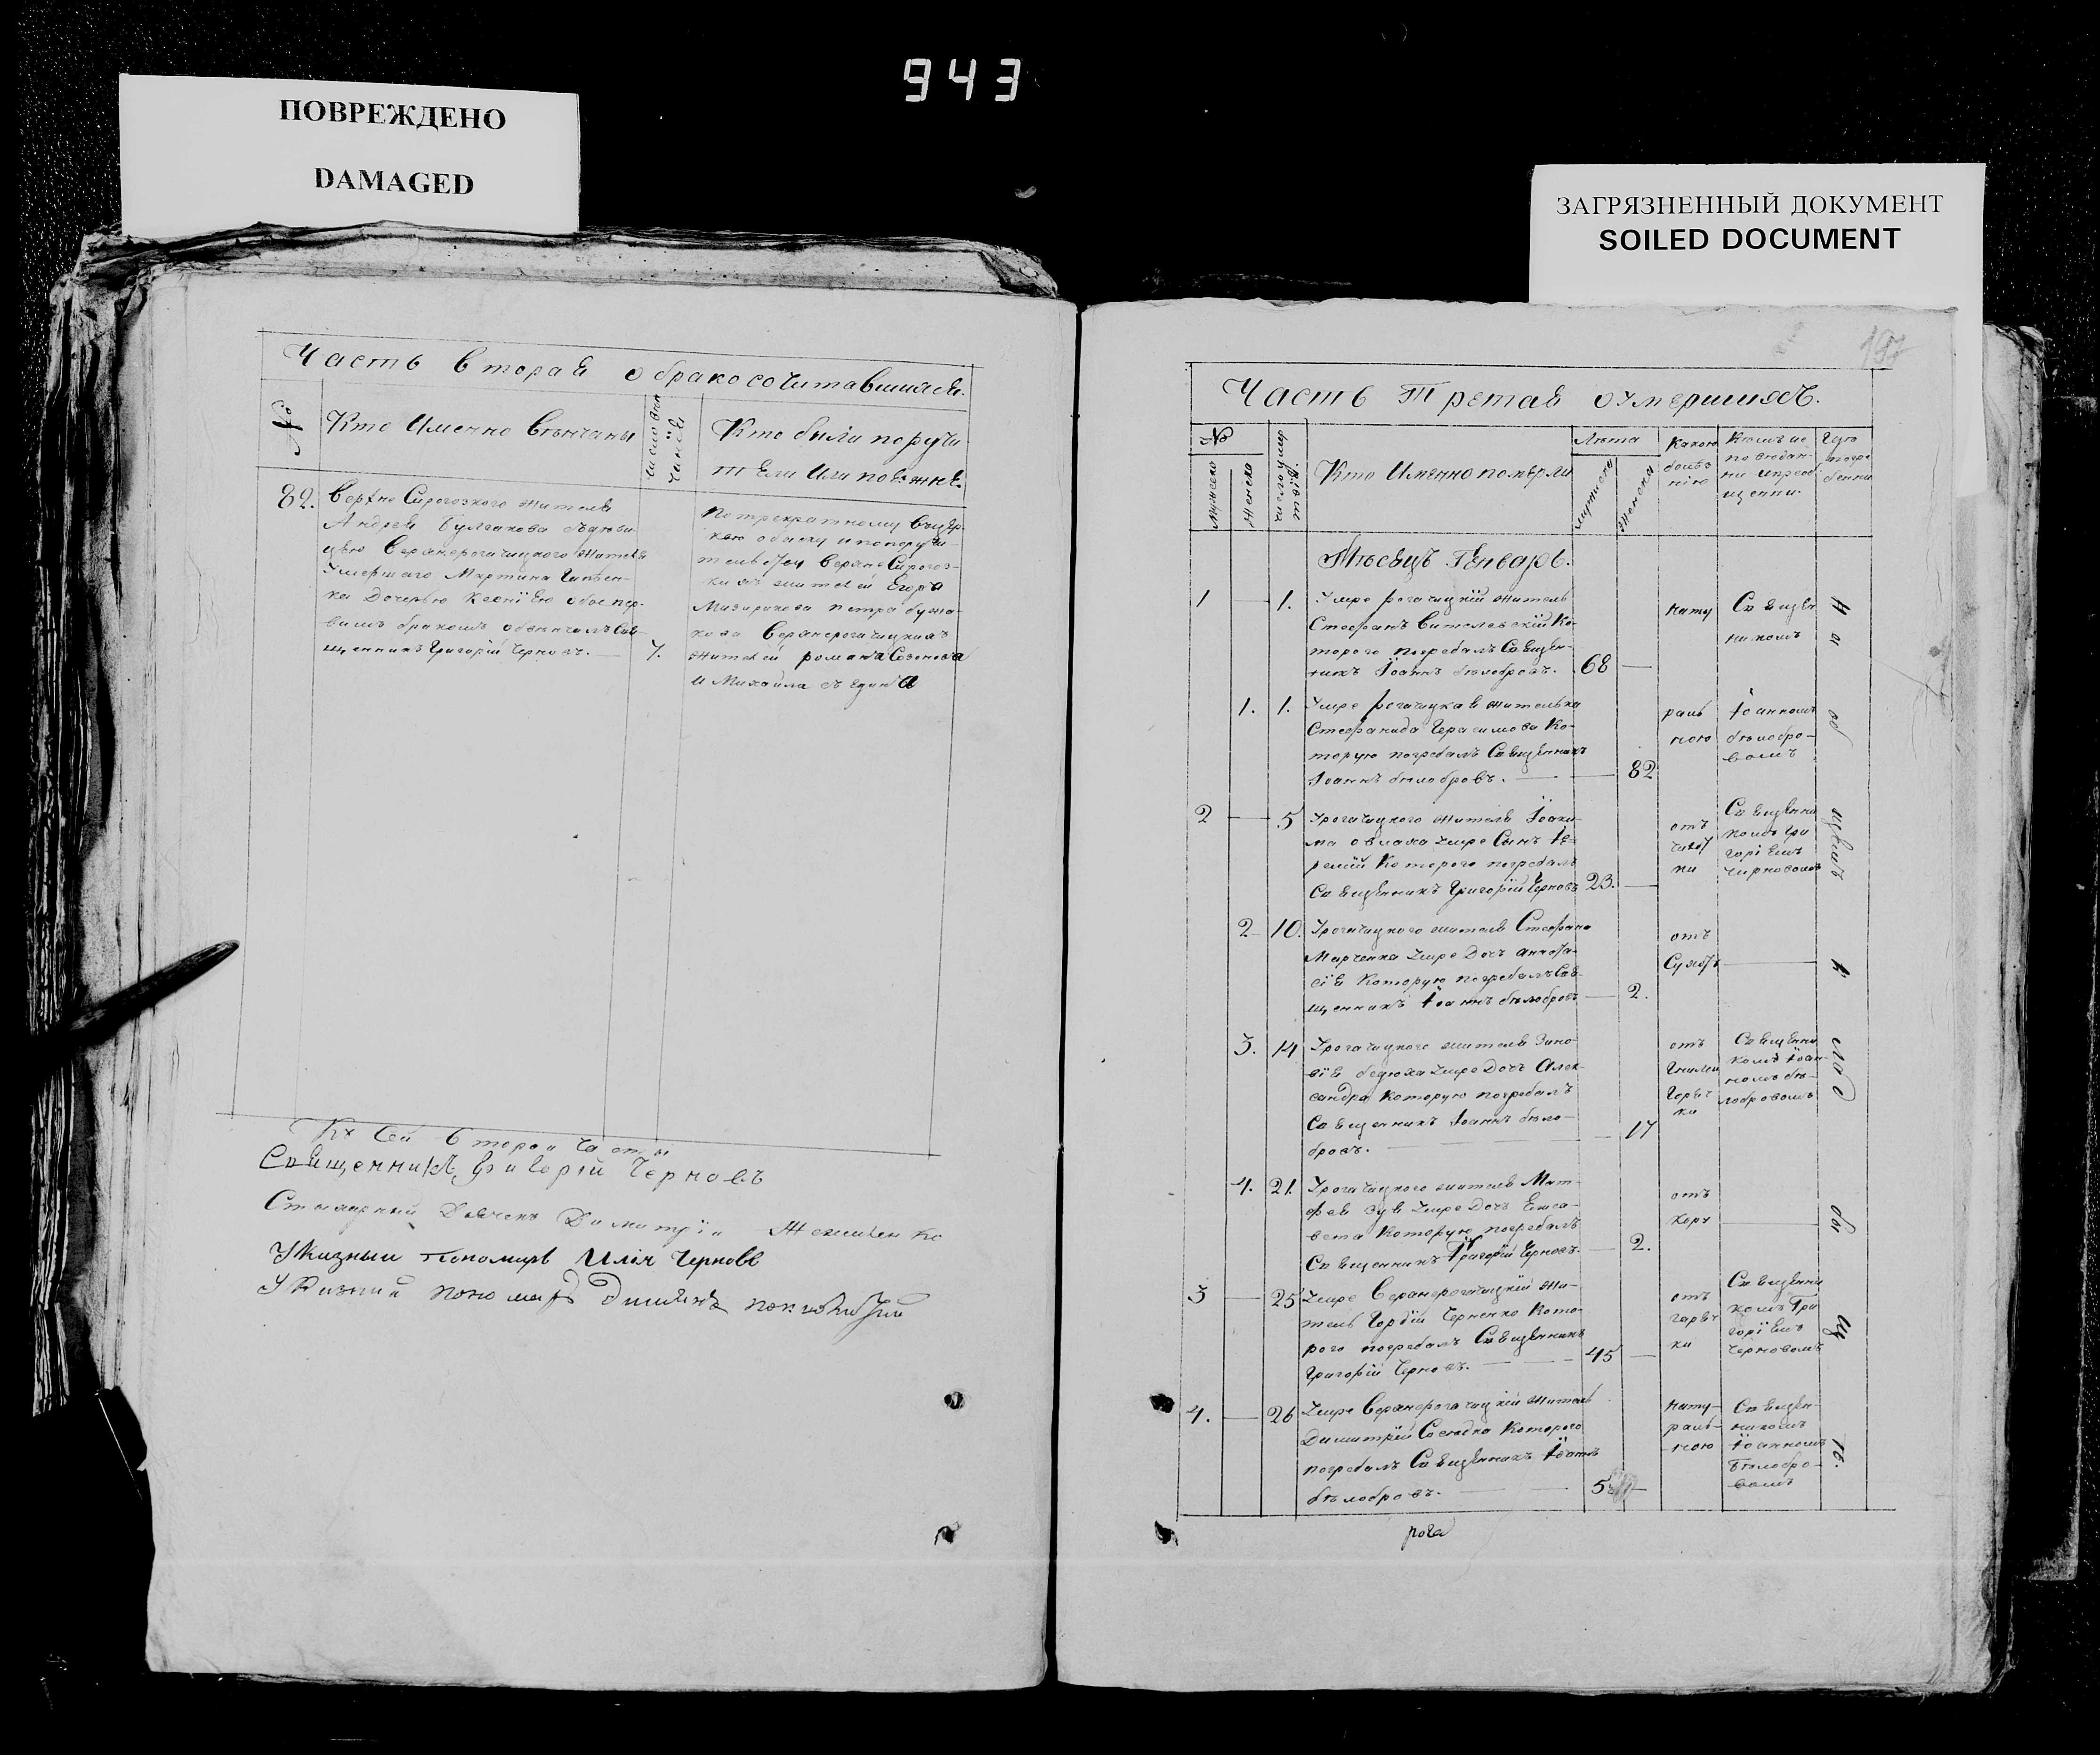 943
ПОВРЕЖДЕНО
DAMAGED
ЗАГРЯЗНЕННЫЙ ДОКУМЕНТ
SOILED DOCUMENT
Часть вторая о бракосочитавшихся.
№
Кто Именно Венчаны
Кто были поручи
тели Или поезжне.
82.
Верхно Сирогозкого жителя
Андрея Булгакова
Верхнерогачицкого жителя
Умершаго Мартина
ка Дочерью Ксенїею обое пер-
вымъ бракомъ обвенчалъ Свя-
щенникъ Григорїй Черновъ.
7.
По трекратному
обыску и по поручи-
Верхне Сирогоз-
кихъ жителей Егора
Петра
Верхнерогачицкихъ
жителей романа Созонова
и Михайла
Къ Сей Второй Части
Священникъ Григорїй Черновъ
Стихарный Дьячекъ Димитрїй
Указный Пономарь Илїя Черновъ
Указный пономарь
197
Часть Третая о умершихъ.
№
мужеска
женска
число умер
твїй.
Кто Именно померли
Лета
мужеска
женска
Какою
болез
нїю
Кемъ ис
поведан-
ни и прео
щенни
Где
погре
бенни
Месецъ Генварь.
1
1.
Умре рогачицкїй житель
Стефанъ Ко-
торого погребалъ Священ-
никъ Іоаннъ белобровъ.
68
нату
Священ
никомъ
На
1.
1.
Умре рогачицкая жителька
Стефанида Герасимова Ко-
торую погребалъ Священникъ
Іоаннъ белобровъ.
82
раль
ною
Іоанномъ
белобро-
вомъ
об
2
5
Урогачицкого жителя Іоаки-
ма умре Сынъ Іе-
ремїй Которого погребалъ
Священникъ Григорїй Черновъ
23.
отъ
Священни
комъ Гри
горїемъ
Черновомъ
щемъ
2
10.
Урогачицкого жителя Стефана
Марченка умре Дочь Анаста-
сїя Которую погребалъ Свя-
щенникъ Іоаннъ белобровъ
2.
отъ
Сухотъ
к
3.
14
Урогачицкого жителя Зино-
вїя бедюха умре Дочь Алек-
сандра Которую погребалъ
Священникъ Іоаннъ бело-
бровъ.
17
отъ
Горяч
ки
Священни
комъ Іоан-
номъ бе-
лобровомъ
лад
4.
21.
Урогачицкого жителя Мат-
фея умре Дочь Елиса-
вета Которую погребалъ
Священникъ Григорїй Черновъ.
2.
отъ
кору
би
3
25
Умре Верхнерогачицкїй жи-
тель Гордїй Черненко Кото-
рого погребалъ Священникъ
Григорїй Черновъ.
45
отъ
горяч
ки
Священни
комъ Гри
горїемъ
Черновомъ
щ
4.
26
Умре Верхнерогачицкїй житель
Димитрїй Соседка Которого
погребалъ Священникъ Іоаннъ
белобровъ.
нату-
раль-
ною
Священ-
никомъ
Іоанномъ
Белобро-
вомъ
ю.
рога